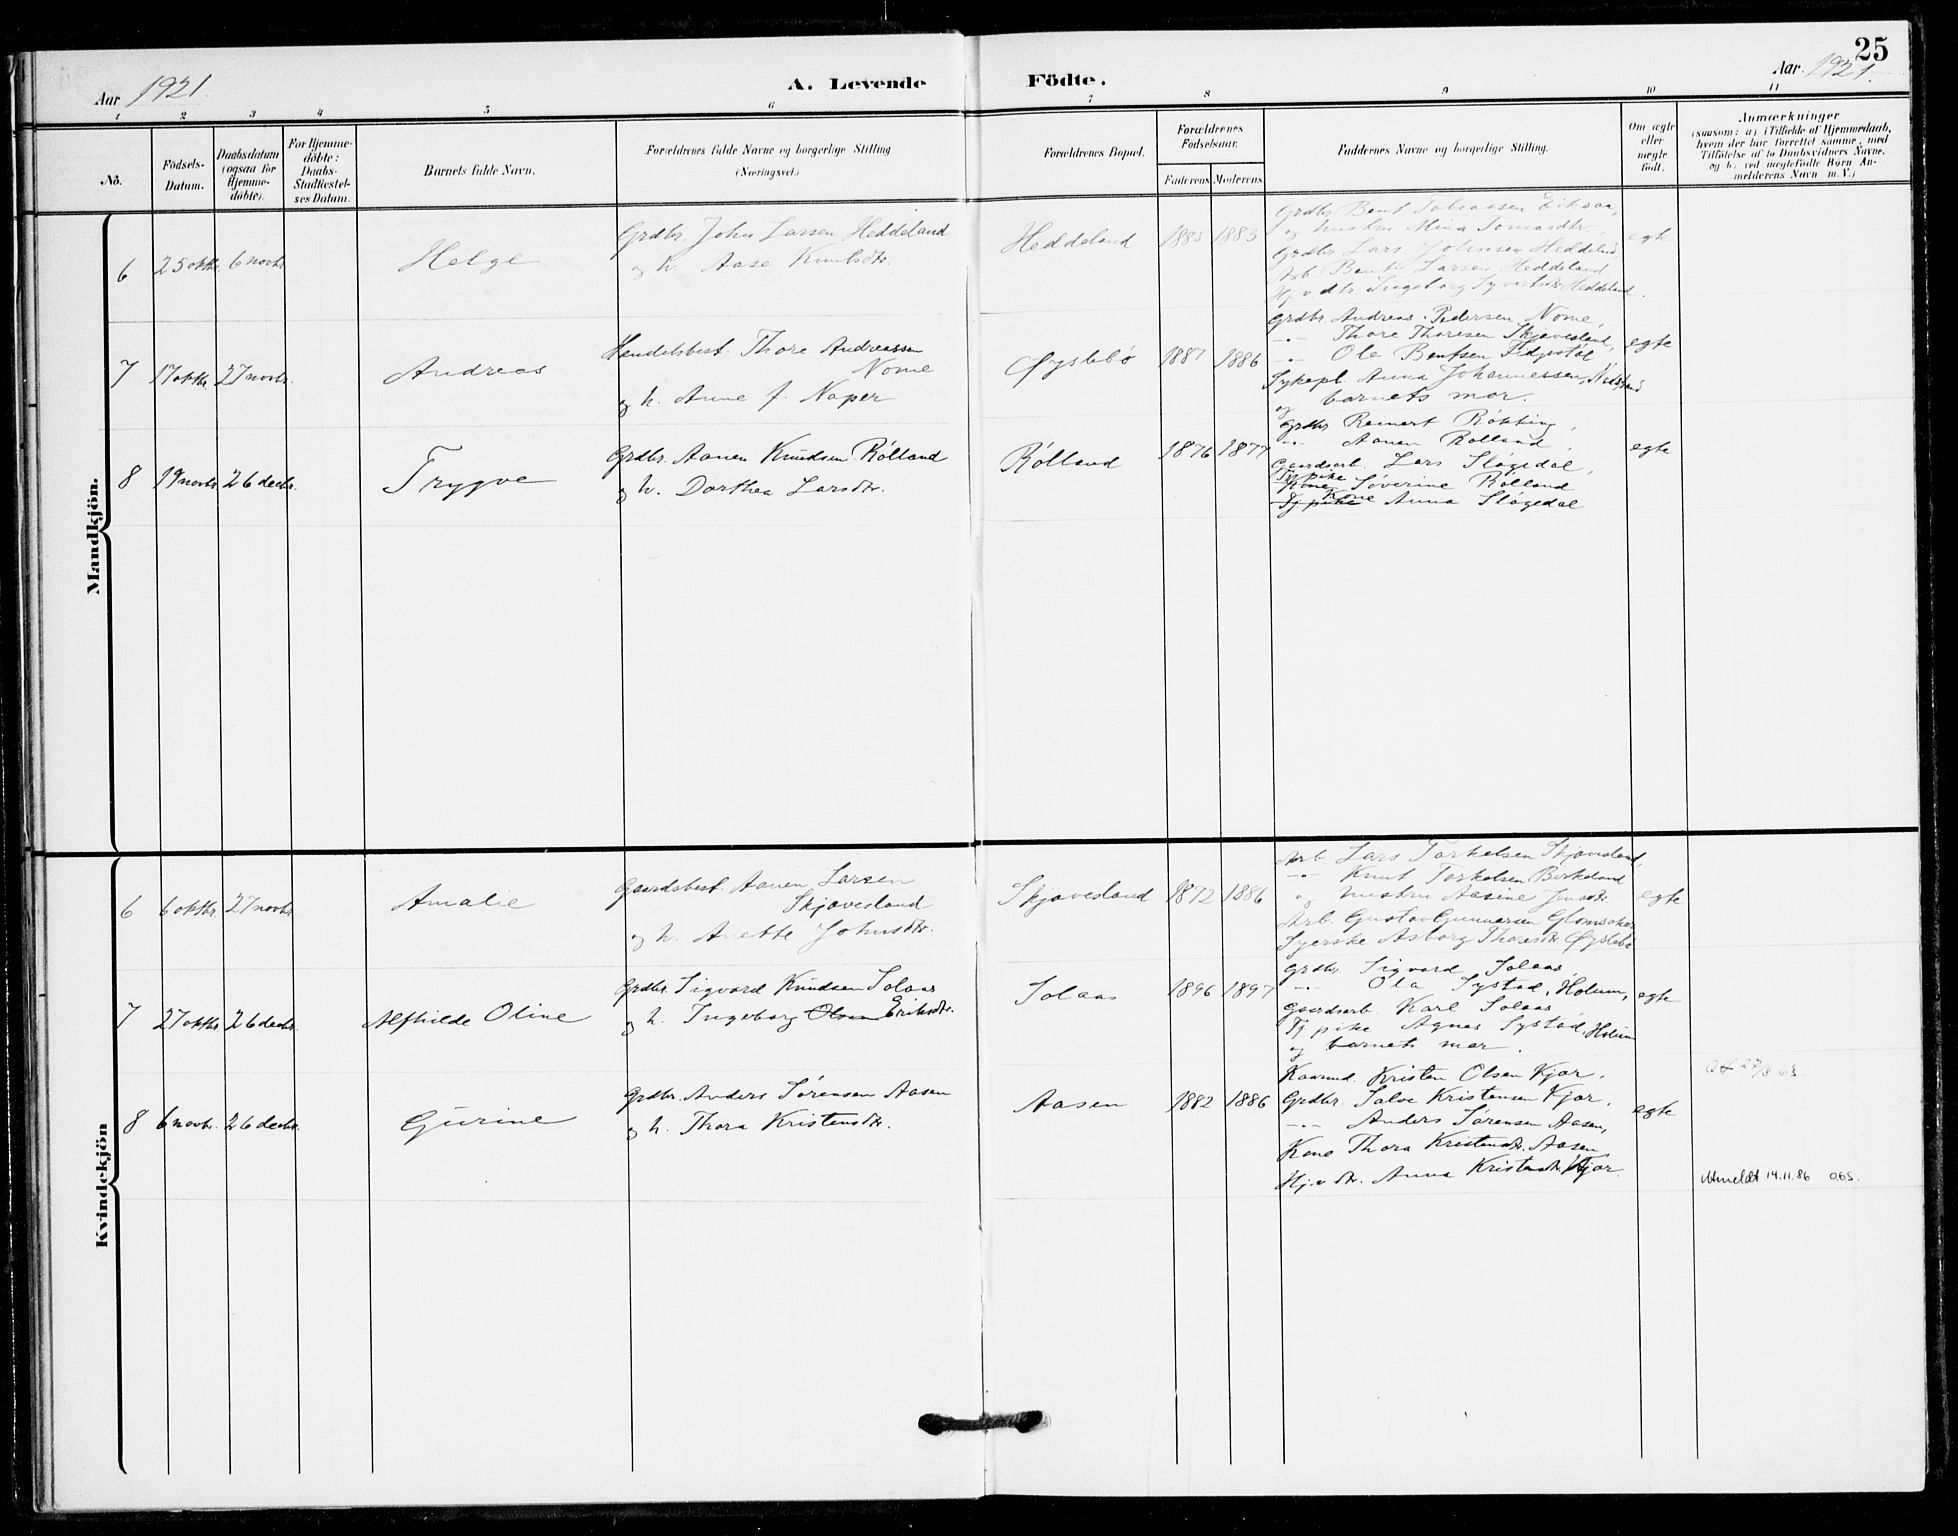 25
Aar 1921.
A. Levende Födte.
Aar 1921.
1 2 3 4 5 6 7 8 9 10 11
No.
Födsels-Datum.
Daabsdatum (ogsaa for Hjemmedöbte).
For Hjemmedöbte: Daabs-Stadfæstelses Datum.
Barnets fulde Navn.
Forældrenes fulde Navne og borgerlige Stilling (Næringsvei.)
Forældrenes Bopæl.
Forældrenes Födselsaar.
Faderens Moderens
Faddernes Navne og borgerlige Stilling.
Om ægte eller uægte födt.
Anmærkninger
(saasom: a) i Tilfælde af Hjemmedaab, hvem der har forrettet samme, med Tilföielse af to Daabsvidners Navne, og b) ved uægtefödte Börn Anmelderens Navn m. V.)
Mandkjön.
6 25 oktbr. 6 novbr. Helge
Grdbr. John Larsen Heddeland
og h. Aase Knutsdtr.
Heddeland 1885 1883
Grdbr. Bent Tobiassen Eiksaa,
og hustru Mina Tomasdtr.,
Grdbr. Lars Johnsen Heddeland,
Arb. Bent Larsen Heddeland
Hj.v. dtr. Ingeborg Syvertsdtr. Heddeland.
egte
7 17 oktbr. 27 novbr. Andreas
Handelsbest. Thore Andreassen
Nome
og h. Anne f. Naper
Øyslebö 1887 1886
Grdbr. Andreas Pedersen Nome,
-"- Thore Thoresen Skjævesland,
-"- Ole Bentsen
Sykepl. Anna Johannessen,
og barnets mor.
egte
8 19 novbr. 26 decbr. Trygve
Grdbr. Aanen Knudsen Rölland
og h. Dorthea Larsdtr.
Rölland 1876 1877
Grdbr. Reinert Rökting,
-"- Aanen Rölland,
Gaardsarb. Lars Slögedal,
Tj. pike
Kone Severine Rölland
Tj. pike Kone Anna Slögedal
egte
Kvindekjön
6 6 oktbr. 27 novbr. Amalie
Gaardsbest. Aanen Larsen
Skjævesland
og h. Anette Johnsdtr.
Skjævesland 1872 1886
Arb. Lars Torkelsen Skjævesland,
-"- Knut Torkelsen Birkeland
og hustru Aasine Jensdtr.
Arb. Gustav Gunnarsen Glomsaker
Syerske Asborg Thoresdtr. Øyslebö
egte
7 27 oktbr. 26 decbr. Alfhilde Oline
Grdbr. Sigvard Knudsen Solaas
og h. Ingeborg Olsen Eriksdtr.
Solaas 1896 1897
Grdbr. Sigvard Solaas,
-"- Ola Systad, Holum,
Gaardsarb. Karl Solaas,
Tj. pike Agnes Systad, Holum
og barnets mor.
egte
8 6 novbr. 26 decbr. Gurine
Grdbr. Anders Sörensen Aasen
og h. Thora Kristensdtr.
Aasen 1882 1886
Kaarmd. Kristen Olsen Kjær.
Grdbr. Salve Kristensen Kjær.
-"- Anders Sörensen Aasen,
Kone Thora Kristensdtr. Aasen
Hj.v. dtr. Anna Kristensdtr. Kjær.
egte
Utmeldt 14.11.86